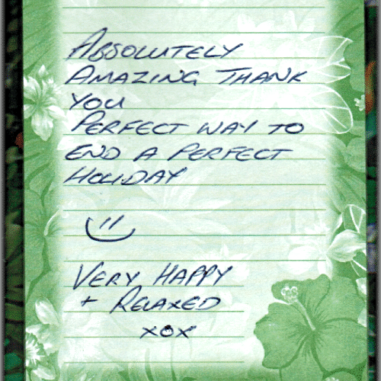 ABSOLUTELY
AMAZING THANK
YOU
PERFECT WAY TO
END A PERFECT
HOLIDAY
VERY HAPPY
+ RELAXED
xox